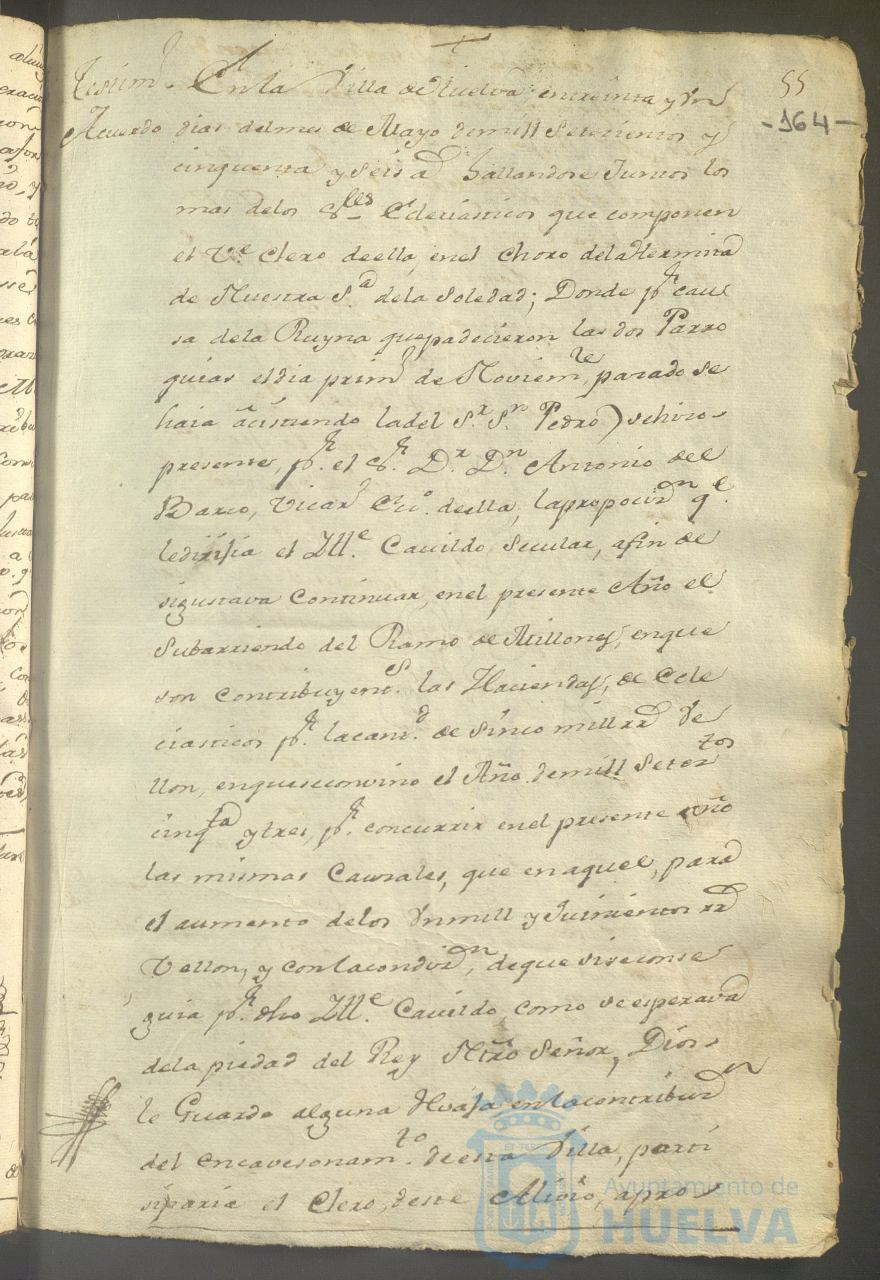 55
-164-
Testimo. En la Villa de Huelva, en treinta y Un
Acuerdo dias del mes de Mayo de mill Setecientos y
cinquenta y Seis ad. hallandose Juntos los
mas de los Sres. Eclesiasticos que componen
el Ve. Clero de ella, en el Choro de la Hermita
de Nuestra Sa. de la Soledad; Donde pr. cau
sa de la Ruyna que padecieron las dos Parro
quias el dia primo. de Noviembre, pasado se
haia asistiendo la del Sr. Sn. Pedro) se hizo
presente, pr. el Sr. Dr. Dn. Antonio del
Barco, Vicaro. Eco. de ella, la propocizn. qe.
le dirijia el Ille. Cavildo Secular, afin de
si gustava Continuar, en el presente Año el
Subarriendo del Ramo de Millones, en que
son contribuyents. las Haciendas, de Ecle
ciasticos pr. la cantd. de Sinco mill rrs. Ve
llon, en que se convino el Año de mill Setezos
cinqta y tres, pr. concurrir en el presente año
las mismas Causales, que en aquel, para
el aumento de los Un mill y Quinientos rrs
Vellon, y con la condizn. de que si se conse
guia pr. dho Ille. Cavildo, como se esperava
de la piedad del Rey Ntro Señor, Dios
le Guarde alguna Revaja en la contribuzn
del encavesonamto. de esta Villa, parti
siparia el Clero, deste Alivio, apro
Ayuntamiento de
HUELVA